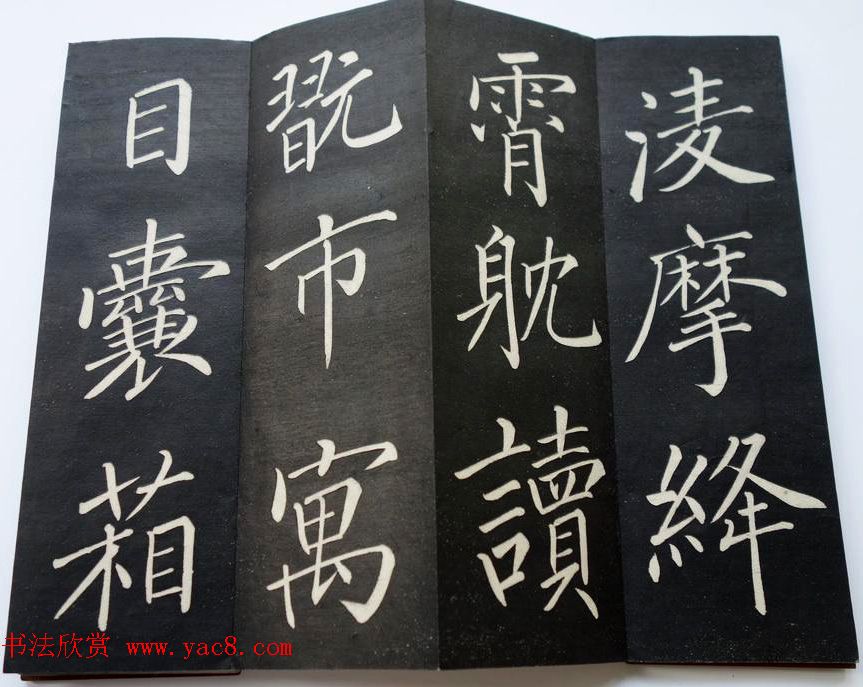 凌摩絳
霄躭讀
翫市寓
目囊葙
书法欣赏 www.yac8.com